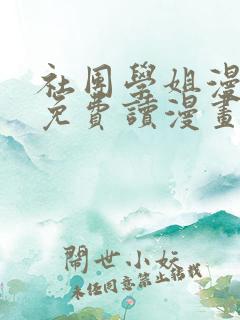 社團學姐漫
免費讀漫畫
鬧世小妖
未經同意禁止轉載